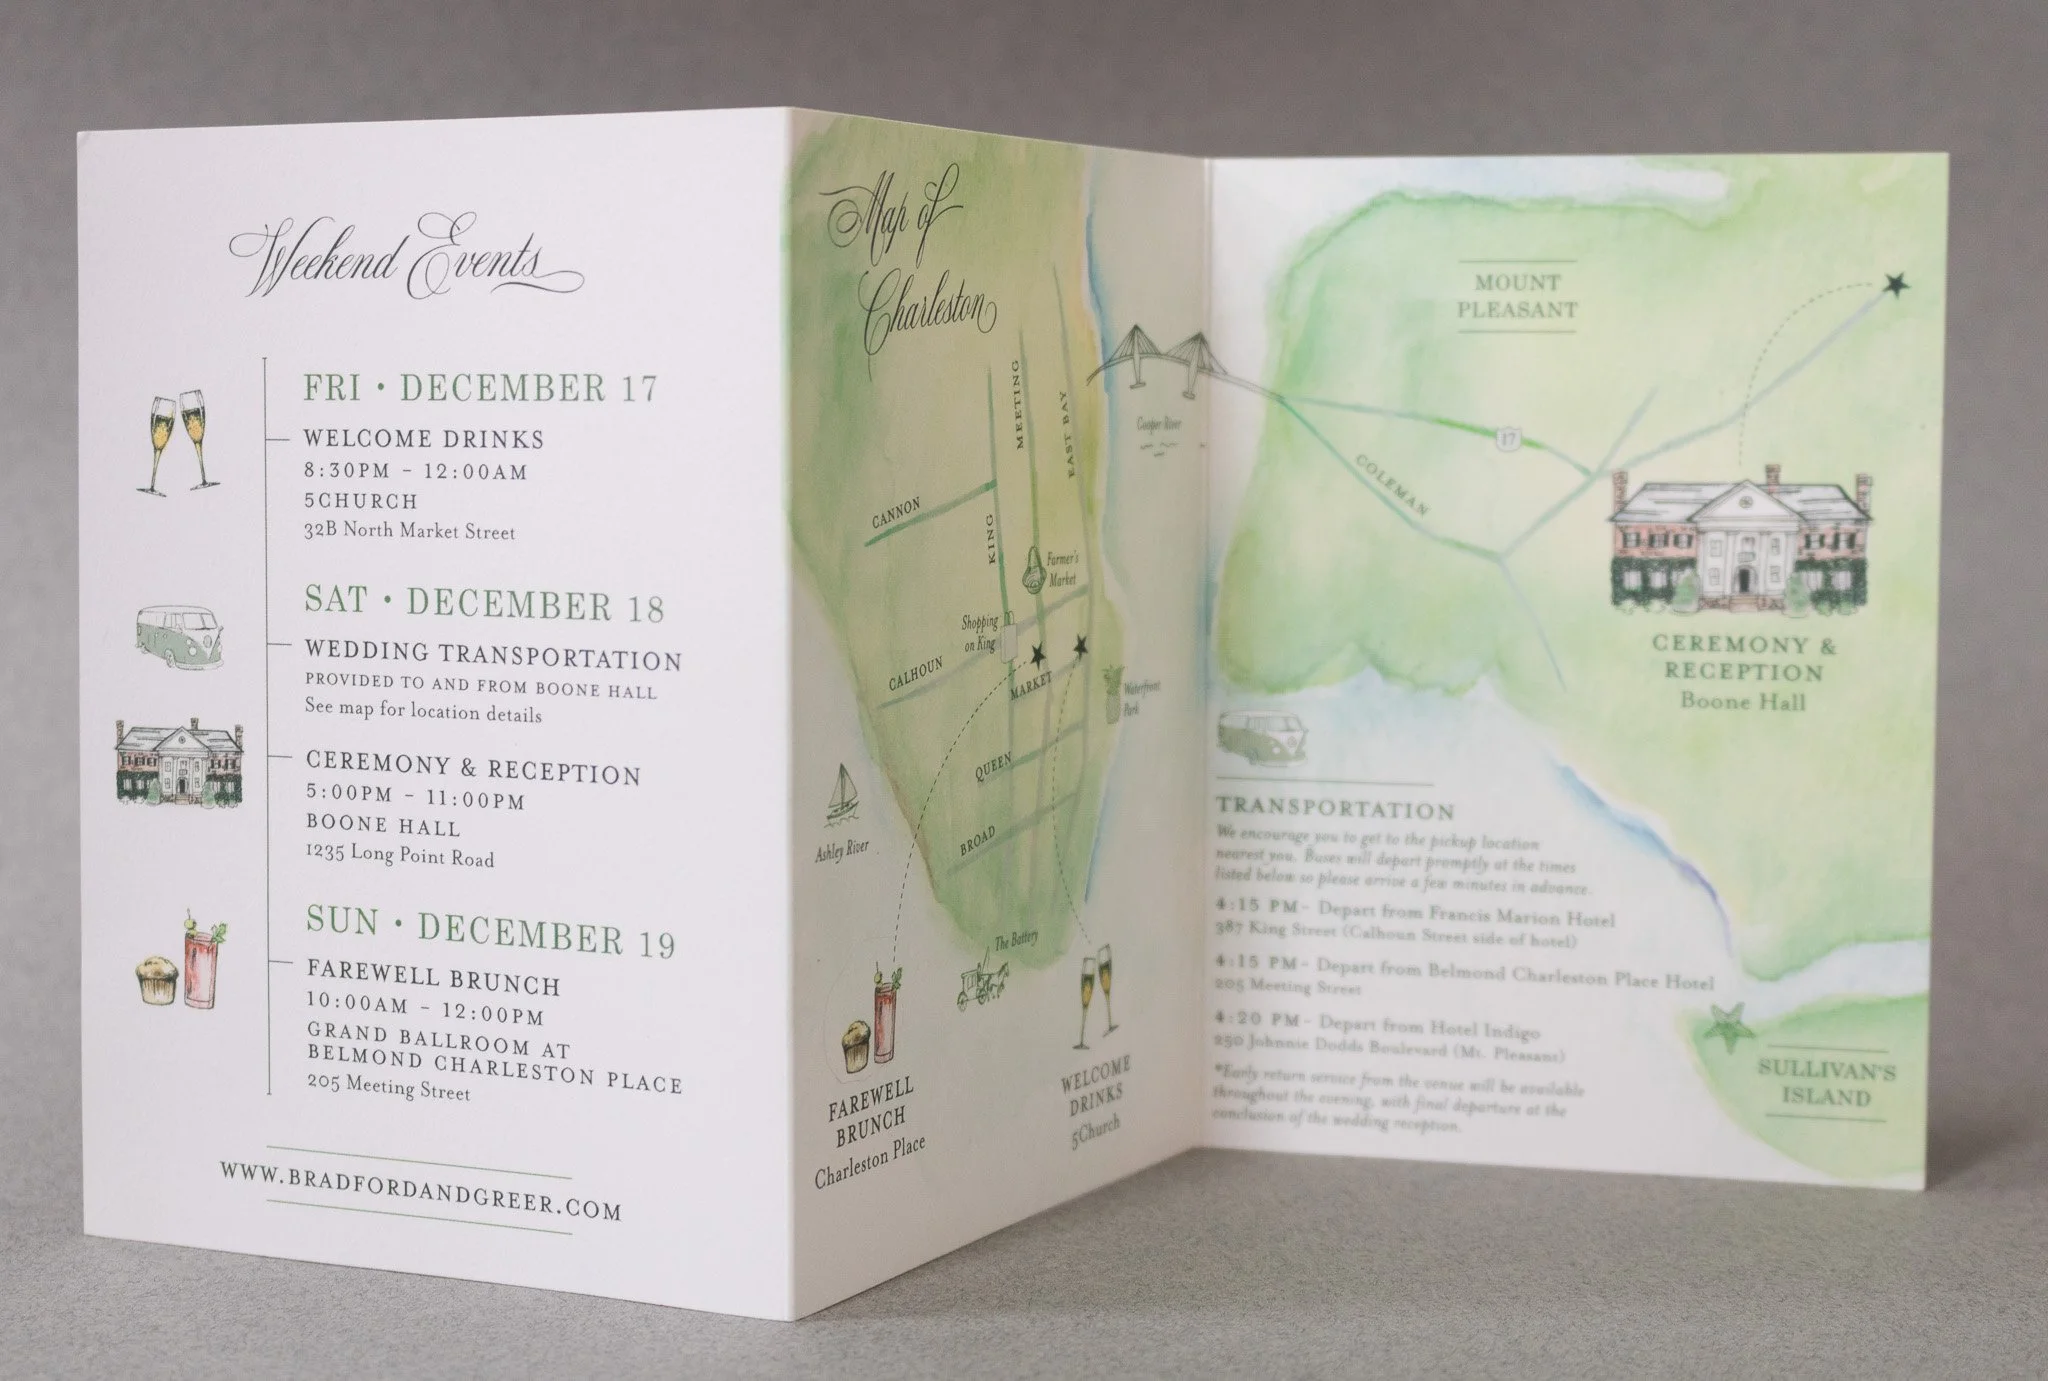 Weekend Events
FRI • DECEMBER 17
WELCOME DRINKS
8:30PM – 12:00AM
5CHURCH
32B North Market Street
SAT • DECEMBER 18
WEDDING TRANSPORTATION
PROVIDED TO AND FROM BOONE HALL
See map for location details
CEREMONY & RECEPTION
5:00PM – 11:00PM
BOONE HALL
1235 Long Point Road
SUN • DECEMBER 19
FAREWELL BRUNCH
10:00AM – 12:00PM
GRAND BALLROOM AT
BELMOND CHARLESTON PLACE
205 Meeting Street
WWW.BRADFORDANDGREER.COM
Map of
Charleston
MEETING
EAST BAY
CANNON
KING
Farmer's
Market
Shopping
on King
CALHOUN
MARKET
Waterfront
Park
QUEEN
BROAD
Ashley River
The Battery
FAREWELL
BRUNCH
Charleston Place
WELCOME
DRINKS
5Church
Cooper River
MOUNT
PLEASANT
17
COLEMAN
CEREMONY &
RECEPTION
Boone Hall
TRANSPORTATION
We encourage you to get to the pickup location
nearest you. Buses will depart promptly at the times
listed below so please arrive a few minutes in advance.
4:15 PM- Depart from Francis Marion Hotel
387 King Street (Calhoun Street side of hotel)
4:15 PM- Depart from Belmond Charleston Place Hotel
205 Meeting Street
4:20 PM- Depart from Hotel Indigo
250 Johnnie Dodds Boulevard (Mt. Pleasant)
*Early return service from the venue will be available
throughout the evening, with final departure at the
conclusion of the wedding reception.
SULLIVAN'S
ISLAND